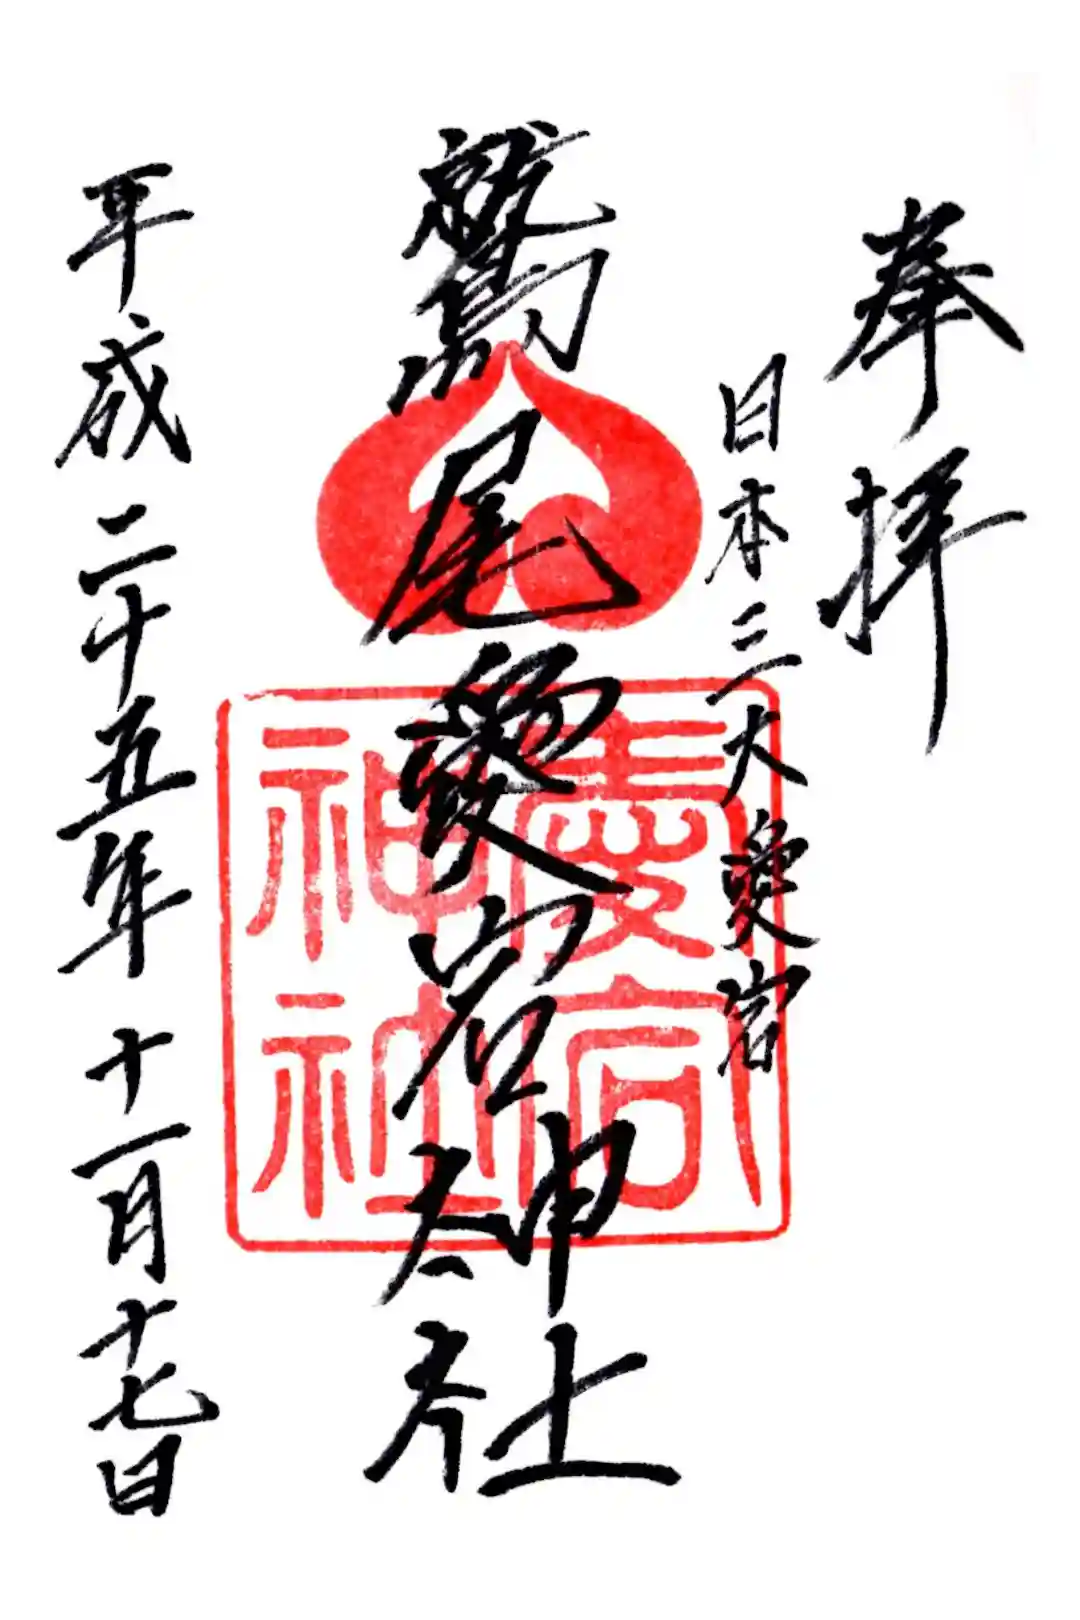 奉拝
日本三大愛宕
鷲尾愛宕神社
愛宕神社
平成二十五年十一月十七日